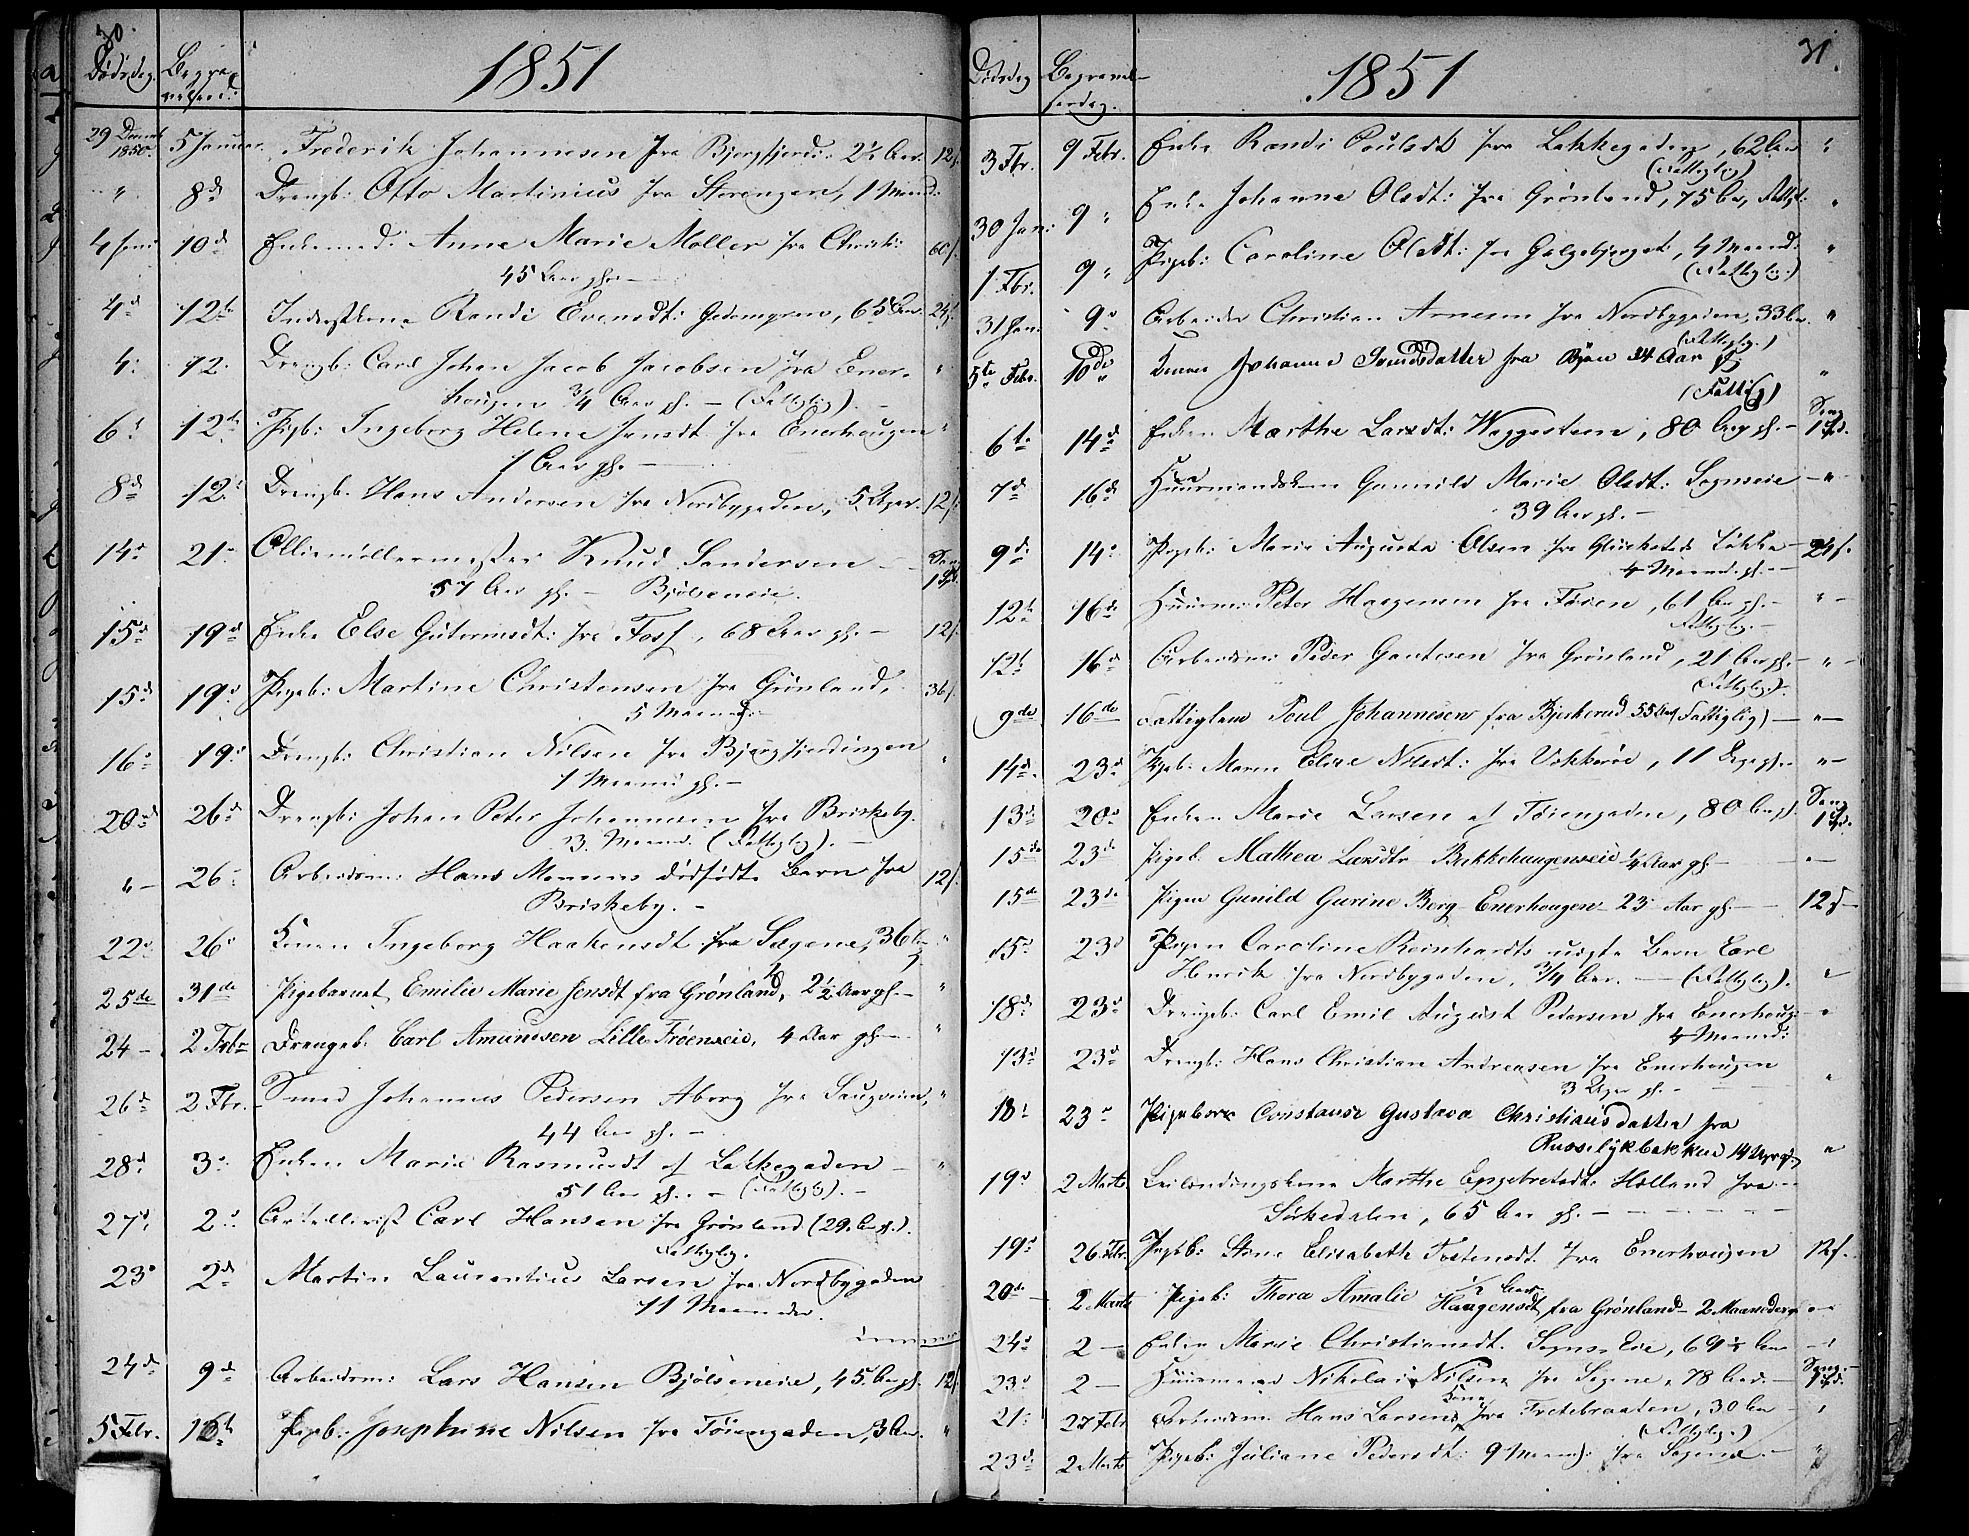 30.
Dödsdag. Begra-
velsesd:
1851
29 Decemb 1850. 5 Januar. Frederik Johannesen fra Bjergfjerd: 2½ Aar. 12 s.
" 8d Drengb: Otto Martinius fra Storengen, 1 Maan:
4 Janu 10d Enkemad: Anne Marie Møller fra Christi: 60 s.
45 Aar gl. —
4d 12te Inderstkone Randi Evensdt: Gedemyren, 65 Aar. 24 s.
4: 12. Drengb: Carl Johan Jacob Jacobsen fra Ener-
hougen ¾ Aar gl. — (Fattiglig). — "
6t 12te Pigeb: Ingeborg Helene Jensdt fra Enerhougen "
1 Aar gl. —
8d 12d Drengb. Hans Andersen fra Nordbygaden, 5 Uger. 12 s.
14d 21: Olliemøllermester Knud Sandersen — Sang
57 Aar gl. — Bjølseneie. 1 Spd.
15de 19d Enke Else Gutormsdt: fra Foss, 68 Aar gl. — 12 s.
15de 19d Pigeb: Martine Christensen fra Grönland, 36 s.
5 Maaned:
16: 19: Drengb: Christian Nilsen fra Bjergfjerdingen "
1 Maaned gl. —
20de 26d Drengb: Johan Peter Johannesen fra Briskeby.
3 Maaned. (Fattiglig). —
" — 26: Arbeidsm: Hans Monsens dødfødte Barn fra 12 s.
Briskeby. —
22d 26d Konen Ingeborg Haakensdt fra Sagene, 36 Aar "
25de 31de Pigebarnet Emilie Marie Jensdt fra Grønland, 2½ Aar gl. — "
24 — 2 Febr Drengeb. Carl Amundsen Lille Frøenseie, 4 Aar gl. — "
26d 2 Fbr. Smed Johannes Pedersen Aborg fra Saugveien, "
44 Aar gl. —
28d 3: Enken Marie Rasmusdt af Lakkegaden — "
51 Aar gl. — (Fattiglig). —
27d: 2d: Artillerist Carl Hansen fra Grønland (29 Aar gl.).
Fattiglig.
23d 2d Martin Laurentius Larsen fra Nordbygaden
11 Maaneder.
24d 9d Arbeidsm: Lars Hansen Bjølseneie, 45 Aar gl. 12 s.
5 Febr. 16de Pigeb: Josephine Nilsen fra Tøiengaden, 3 Aar. "
31.
Dödsdag Begravel-
sesdag.
1851
3 Fbr. 9 Febr. Enke Randi Poulsdt fra Lakkegaden, 62 Aar "
(Fattiglig)
30 Jan: 9 " Enke Johanne Olsdt: fra Grønland, 75 Aar, Fattigl: "
1 Fbr. 9 " Pigeb: Caroline Olsdt: fra Galgebjerget, 4 Maaned: "
(Fattiglig.)
31 Jan. 9d Arbeider Christian Arnesen fra Nordbygaden, 33 Aar. "
(Fattiglig.)
5te Febr. 10de Konen Johanne Svendsdatter fra Byen 34 Aar gl "
(Fattig)
6te 14d Enken Marthe Larsdt: Waggesteen, 80 Aar gl. — Sang 1 Spd.
7d 16d Huusmandskone Gunnild Marie Olsdt: Sogneeie — " —
39 Aar gl. —
9d 14d Pigeb: Marie Augusta Olsen fra Glückstads Løkke — 24 s.
4 Maaned. gl. —
12te 16de Huusm: Peter Haagensen fra Tøien, 61 Aar gl. — " —
Fattiglig. —
12te 16de Arbeidsm: Peder Gautesen fra Grønland, 21 Aar gl. — " —
(Fattiglig.).
9de 16de Fattiglem Poul Johannesen fra Bjerkerud 55 Aar (Fattiglig) — " —
14d. 23d Pigeb: Maren Elise Nilsdt: fra Vekkerøe, 11 Uger gl. — " —
13d: 20d Enken Marie Larsen af Tøiengaden, 80 Aar gl. Sang 1 Spd.
15de 23de Pigeb. Mathea Larsdtr Bakkehaugenseie ¼ Aar gl — " —
15de 23de Pigen Gunild Gurine Berg Enerhougen 23 Aar gl. — 12 s —
15d 23d Pigen Caroline Reinhardts uægte Barn Carl
Henrik fra Nordbygaden, ¾ Aar. — (Fattiglig). "
18d 23d Drengeb: Carl Emil August Pedersen fra Enerhoug: — "
4 Maaned:
13d 23d Drengb: Hans Christian Andreasen fra Enerhougen "
3 Uger gl. —
18d 23d Pigebarn Constanse Gustava Christiansdatter fra
Russeløkbakken 14 Uger gl. "
19d 2 Marts. Leilændingskone Marthe Engebretsdt. Holland fra —
Sørkedalen, 65 Aar gl. —
19d 26 Fbr. Pigeb: Stine Elisabeth Tostensdt. fra Enerhougen 12 s.
½ Aar
20de — 2 Marts Pigeb: Thora Amalie Haagensdt fra Grønland — 2 Maaneder gl " —
24d 2 — Enken Marie Christiansdt. Sogns Eie, 69½ Aar — "
23d 2 — Huusmand Nikolai Nilsen fra Sagene, 78 Aar. — Sang 1 Spd.
21: 27 Febr Arbeidsm. Hans Larsens Kone fra Fredebraaten, 30 Aar — "
(Fattiglig.)
23d: 2 Marts Pigeb: Juliane Pedersdt: 9 Maand: fra Sagene — "